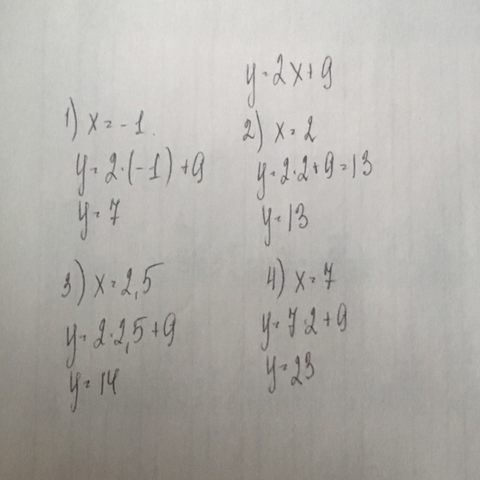 y=2x+9
1) x=-1.
y=2·(-1)+9
y=7
2) x=2
y=2·2+9=13
y=13
3) x=2,5
y=2·2,5+9
y=14
4) x=7
y=7·2+9
y=23